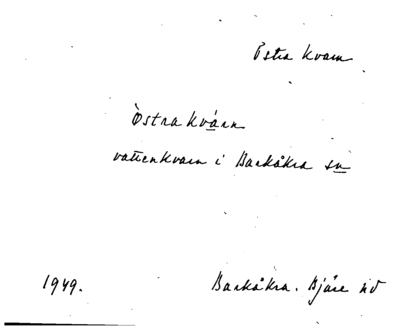 Östra Kvarn
Östra kvarn
vattenkvarn i Barkåkra sn
1949.
Barkåkra. Bjäre hd